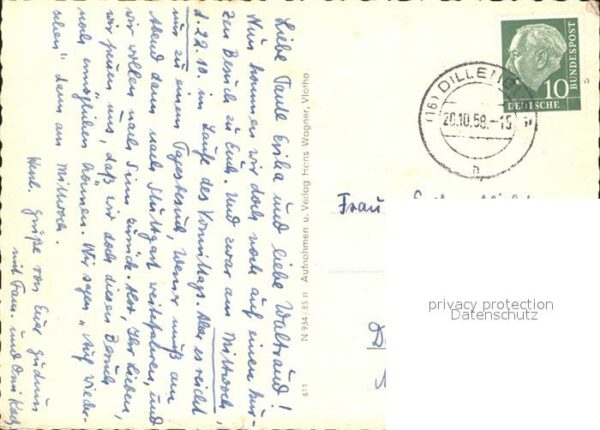 Liebe Tante Erika und liebe Waltraud!
Nun kommen wir doch noch auf einen kur-
zen Besuch zu Euch. Und zwar am Mittwoch,
d. 22.10. im Laufe des Vormittags. Aber es reicht
nur zu einem Tagesbesuch, Werner muß am
Abend dann nach Stuttgart weiterfahren, und
wir wollen nach Sinn zurück. Also, Ihr Lieben,
wir freuen uns, daß wir doch diesen Besuch
noch ermöglichen können. Wir sagen "Auf Wieder-
sehen" dann am Mittwoch.
Herzl. Grüße von Euer Gudrun
mit Fam. und Omi
N 934/35 n Aufnahmen u. Verlag Hans Wagner, Vlotho
511
(16) DILLENB
20.10.58.-15
n
10
DEUTSCHE
BUNDESPOST
Frau
privacy protection
Datenschutz